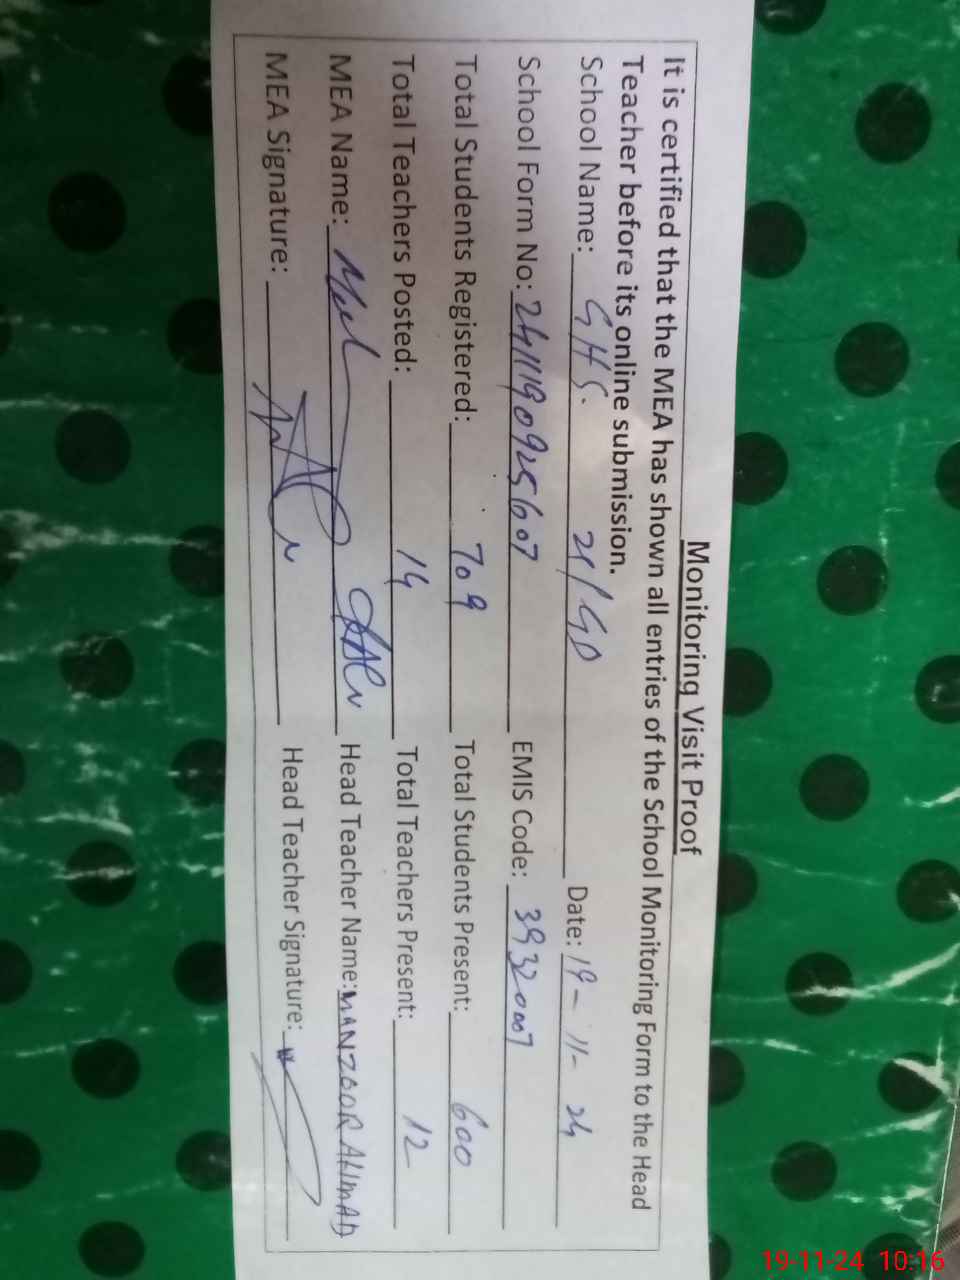 Monitoring Visit Proof
It is certified that the MEA has shown all entries of the School Monitoring Form to the Head
Teacher before its online submission.
School Name: GHS. 21/GD Date: 19-11-24
School Form No: 2411190925607 EMIS Code: 39320007
Total Students Registered: 709 Total Students Present: 600
Total Teachers Posted: 14 Total Teachers Present: 12
MEA Name: Head Teacher Name: MANZOOR AHMAD
MEA Signature: Head Teacher Signature:
19-11-24 10:16